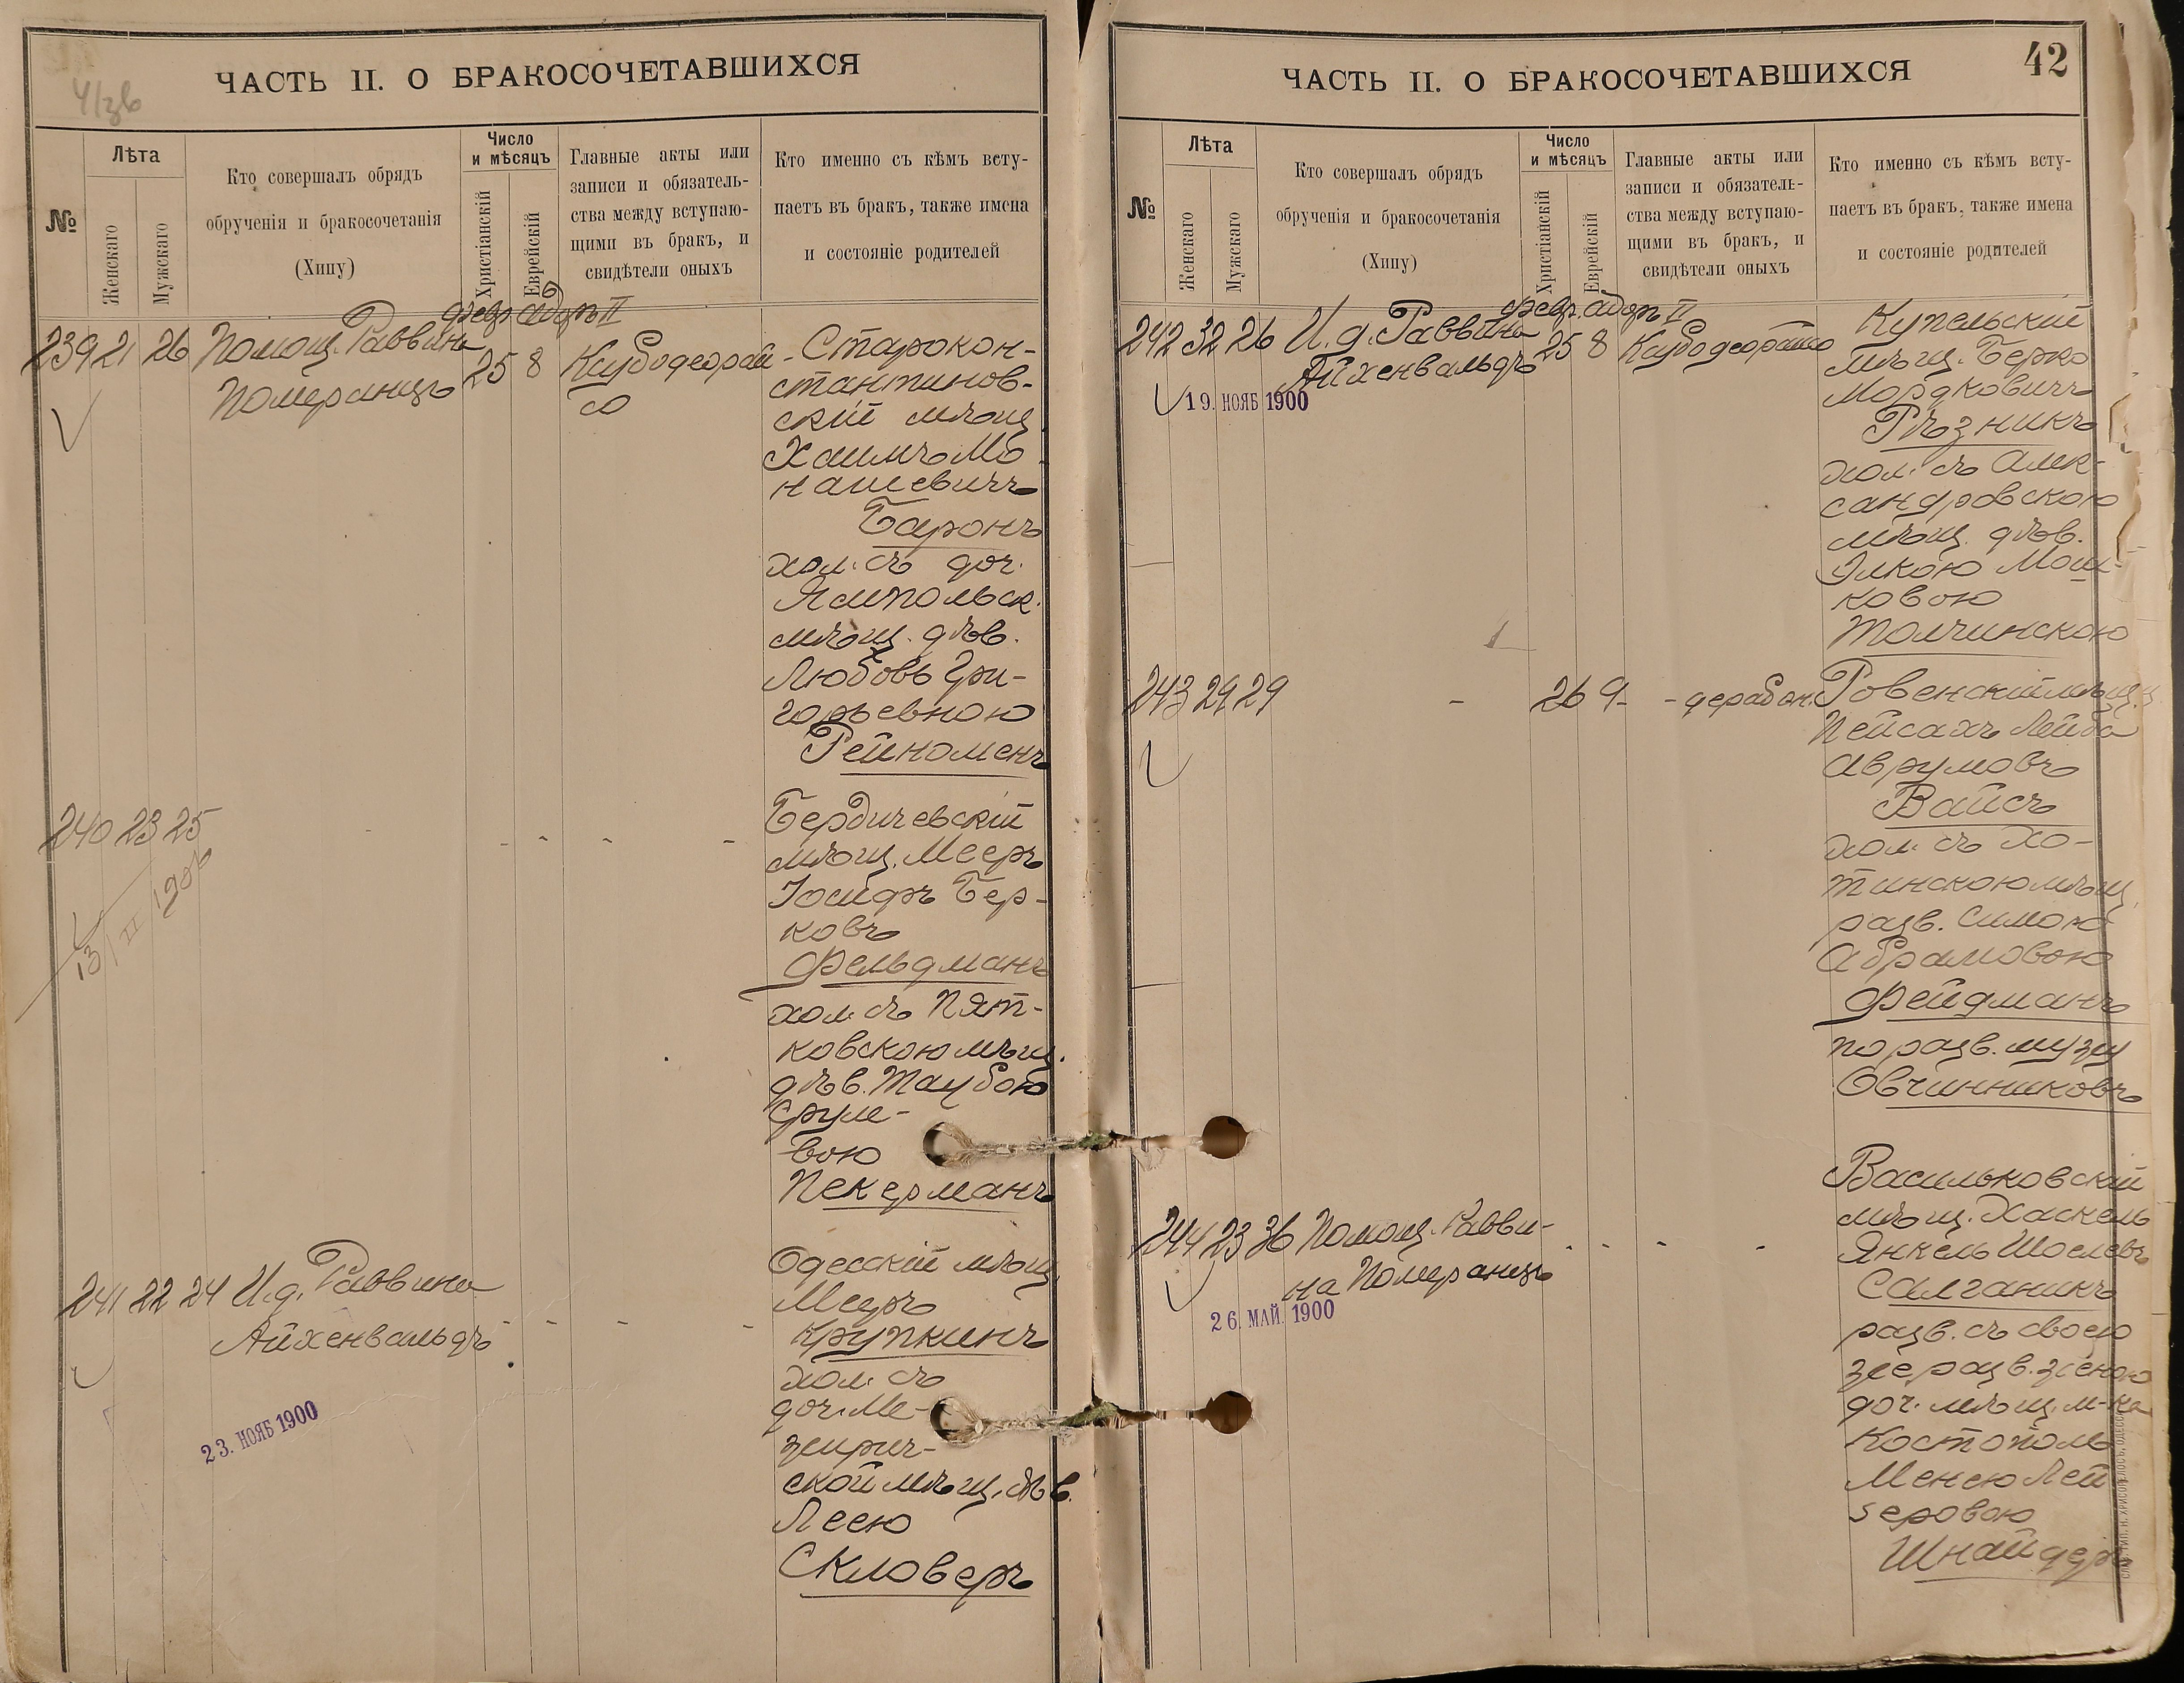 4/зв
ЧАСТЬ II. О БРАКОСОЧЕТАВШИХСЯ
№
Лѣта
Женскаго
Мужскаго
Кто совершалъ обрядъ
обрученія и бракосочетанія
(Хипу)
Число
и мѣсяцъ
Христіанскій
Еврейскій
Главные акты или
записи и обязатель-
ства между вступаю-
щими въ бракъ, и
свидѣтели оныхъ
Кто именно съ кѣмъ всту-
паетъ въ бракъ, также имена
и состояніе родителей
февр. адоръ II
239 21 26 Помощ. Раввина 25 8
Померанцъ
Старокон-
стантинов-
скій мѣщ.
Хаимъ Мо-
нашевичъ
Баронъ
хол. съ доч.
Ямпольск.
мѣщ. дѣв.
Любовь Гри-
горьевною
240 23 25 - - - - -
13/II 1906
Бердичевскій
мѣщ. Мееръ
Іосифъ Бер-
ковъ
Фельдманъ
хол. съ Пят-
ковскою мѣщ.
дѣв. Таубою
Сруле-
вою
Пекерманъ
241 22 24 И. д. Раввина
Айхенвальдъ - - - -
23. НОЯБ 1900
Одесскій мѣщ.
Мееръ
Крупкинъ
хол. съ
доч. Ме-
зирич-
ской мѣщ. дѣв.
Леею
Скловеръ
42
ЧАСТЬ II. О БРАКОСОЧЕТАВШИХСЯ
№
Лѣта
Женскаго
Мужскаго
Кто совершалъ обрядъ
обрученія и бракосочетанія
(Хипу)
Число
и мѣсяцъ
Христіанскій
Еврейскій
Главные акты или
записи и обязатель-
ства между вступаю-
щими въ бракъ, и
свидѣтели оныхъ
Кто именно съ кѣмъ всту-
паетъ въ бракъ, также имена
и состояніе родителей
февр. адоръ II
242 32 26 И. д. Раввина 25 8
Айхенвальдъ
19. НОЯБ 1900
Купельскій
мѣщ. Берко
Мордковичъ
Рѣзникъ
хол. съ Алек-
сандровскою
мѣщ. дѣв.
Элкою Мош-
ковою
Толчинскою
243 29 29 - 26 9 - - дерабон.
Ровенскій мѣщ.
Пейсахъ Лейба
Аврумовъ
Вайсъ
хол. съ Хо-
тинскою мѣщ.
разв. Симою
Абрамовою
Фейдманъ
по разв. мужу
Овчинниковъ
244 23 36 Помощ. Равви- - - - -
на Померанцъ
26. МАЙ. 1900
Васильковскій
мѣщ. Хаскель
Янкель Шоелевъ
Салганикъ
разв. съ своею
же разв. женою
доч. мѣщ. м-ка
Костополь
Менею Лей
зеровою
Шнайдеръ